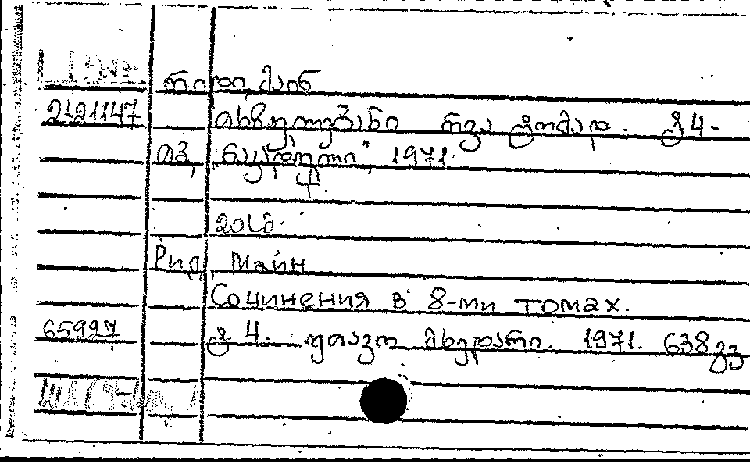 რიდი, მაინ
2121147 თხზულებანი რვა ტომად. ტ 4.
თბ, "ნაკადული", 1971.
Рид, Майн
Сочинения в 8-ми томах.
65927 ტ 4. უთავო მხედარი. 1971. 638 გვ